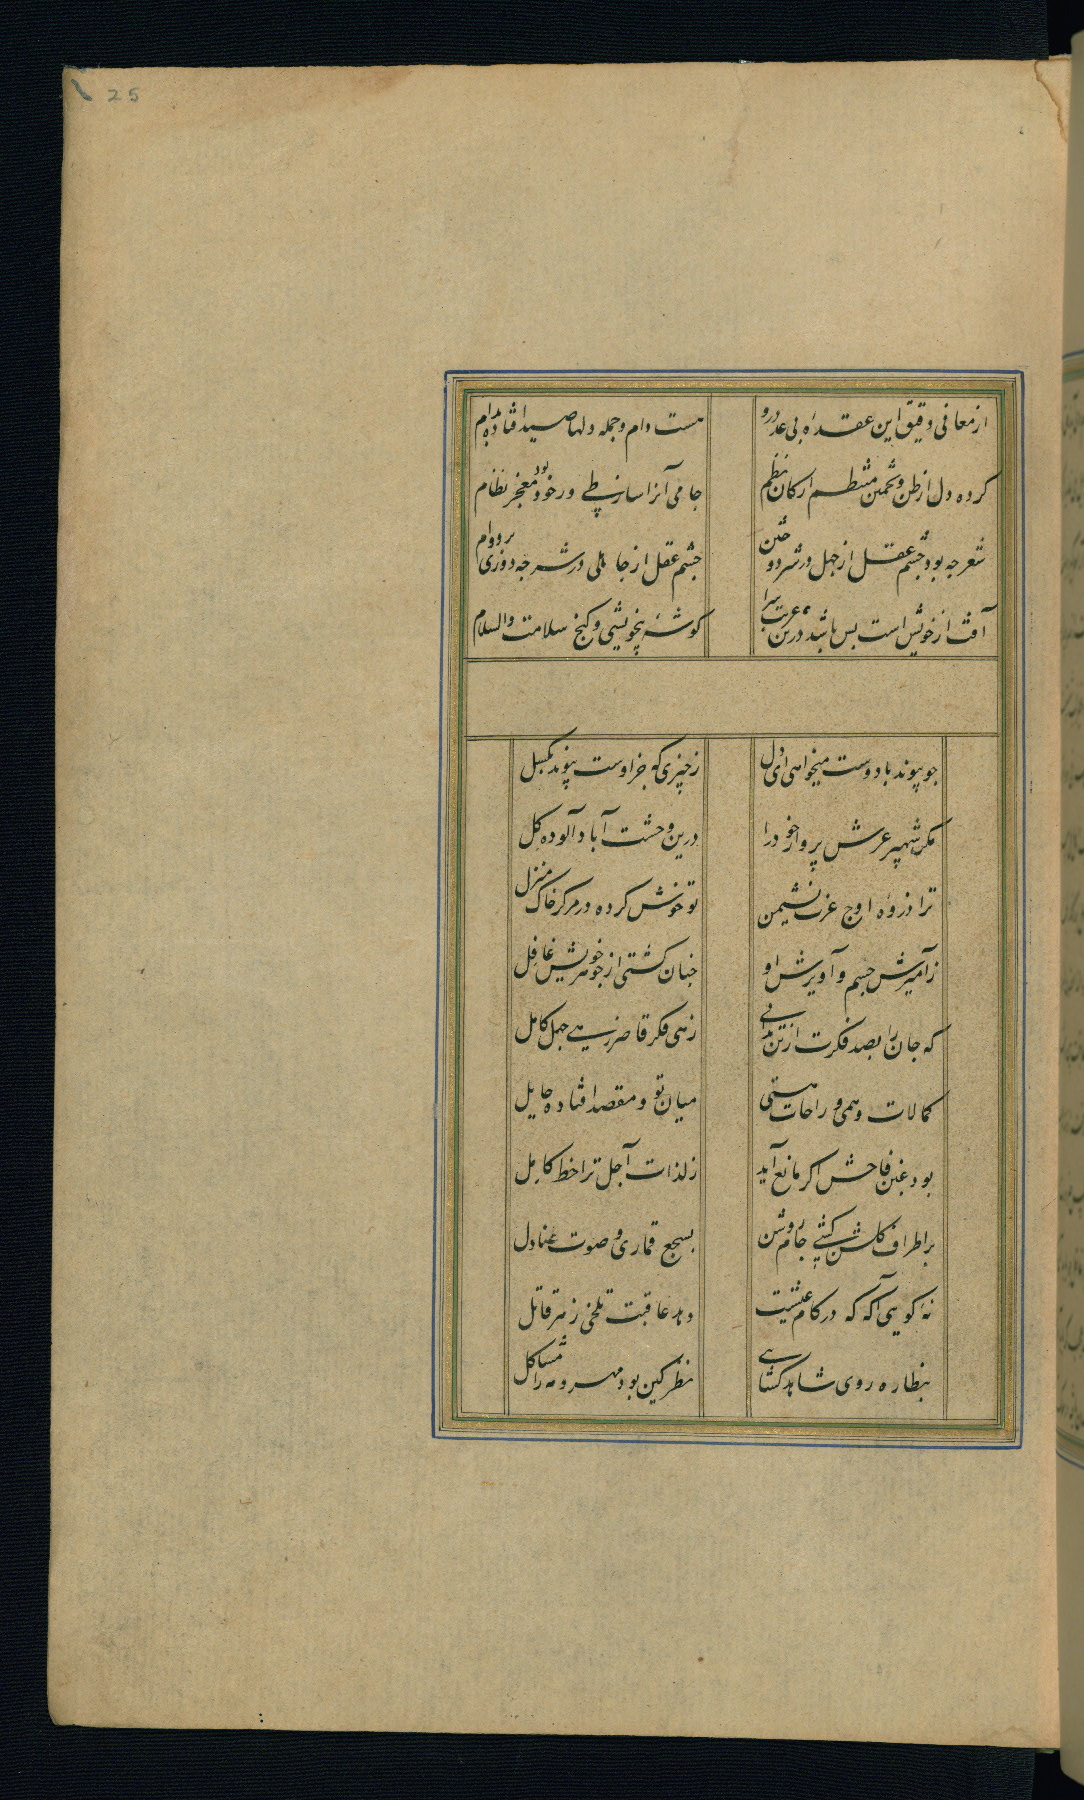 25
از معانی دقیق این عقدهٔ بی عد درو
هست دام و جمله دلها صید افتاده بدام
کرده دل از ظن و تخمین منتظم ارکان نظم
جامی آنرا ساز طی در خود بود معجز نظام
شعر چه بود چشم عقل از جهل در شر دوختن
چشم عقل از جاهلی در شر چه دوزی بر دوام
آفت از خویش است بس باشد درین عبرت سرا
کوشهٔ بیخویشی و کنج سلامت والسلام
چو پیوند با دوست میخواهی ای دل
ز چیزی که جز اوست پیوند بکسل
مکن شهپر عرش پرواز خود را
درین وحشت آباد آلوده کل
ترا ذروهٔ اوج عزت نشیمن
تو خوش کرده در مرکز خاک منزل
ز آمیزش جسم و آویزش او
چنان کشتی از جوهر خویش غافل
که جان را بصد فکرت از تن ندانی
زهی فکر قاصر زهی جهل کامل
کمالات وهمی و راحات هستی
میان تو و مقصد افتاده حایل
بود غبن فاحش اکر مانع آید
ز لذات آجل ترا حظ کامل
بر اطراف کلشن کشی جام روشن
بسجع قماری و صوت عنادل
نهٔ کویی آکه که در کام عیشت
دهد عاقبت تلخی زهر قاتل
بنظاره روی شاهد کشایی
نظر کین بود مهر و مه را مشاکل